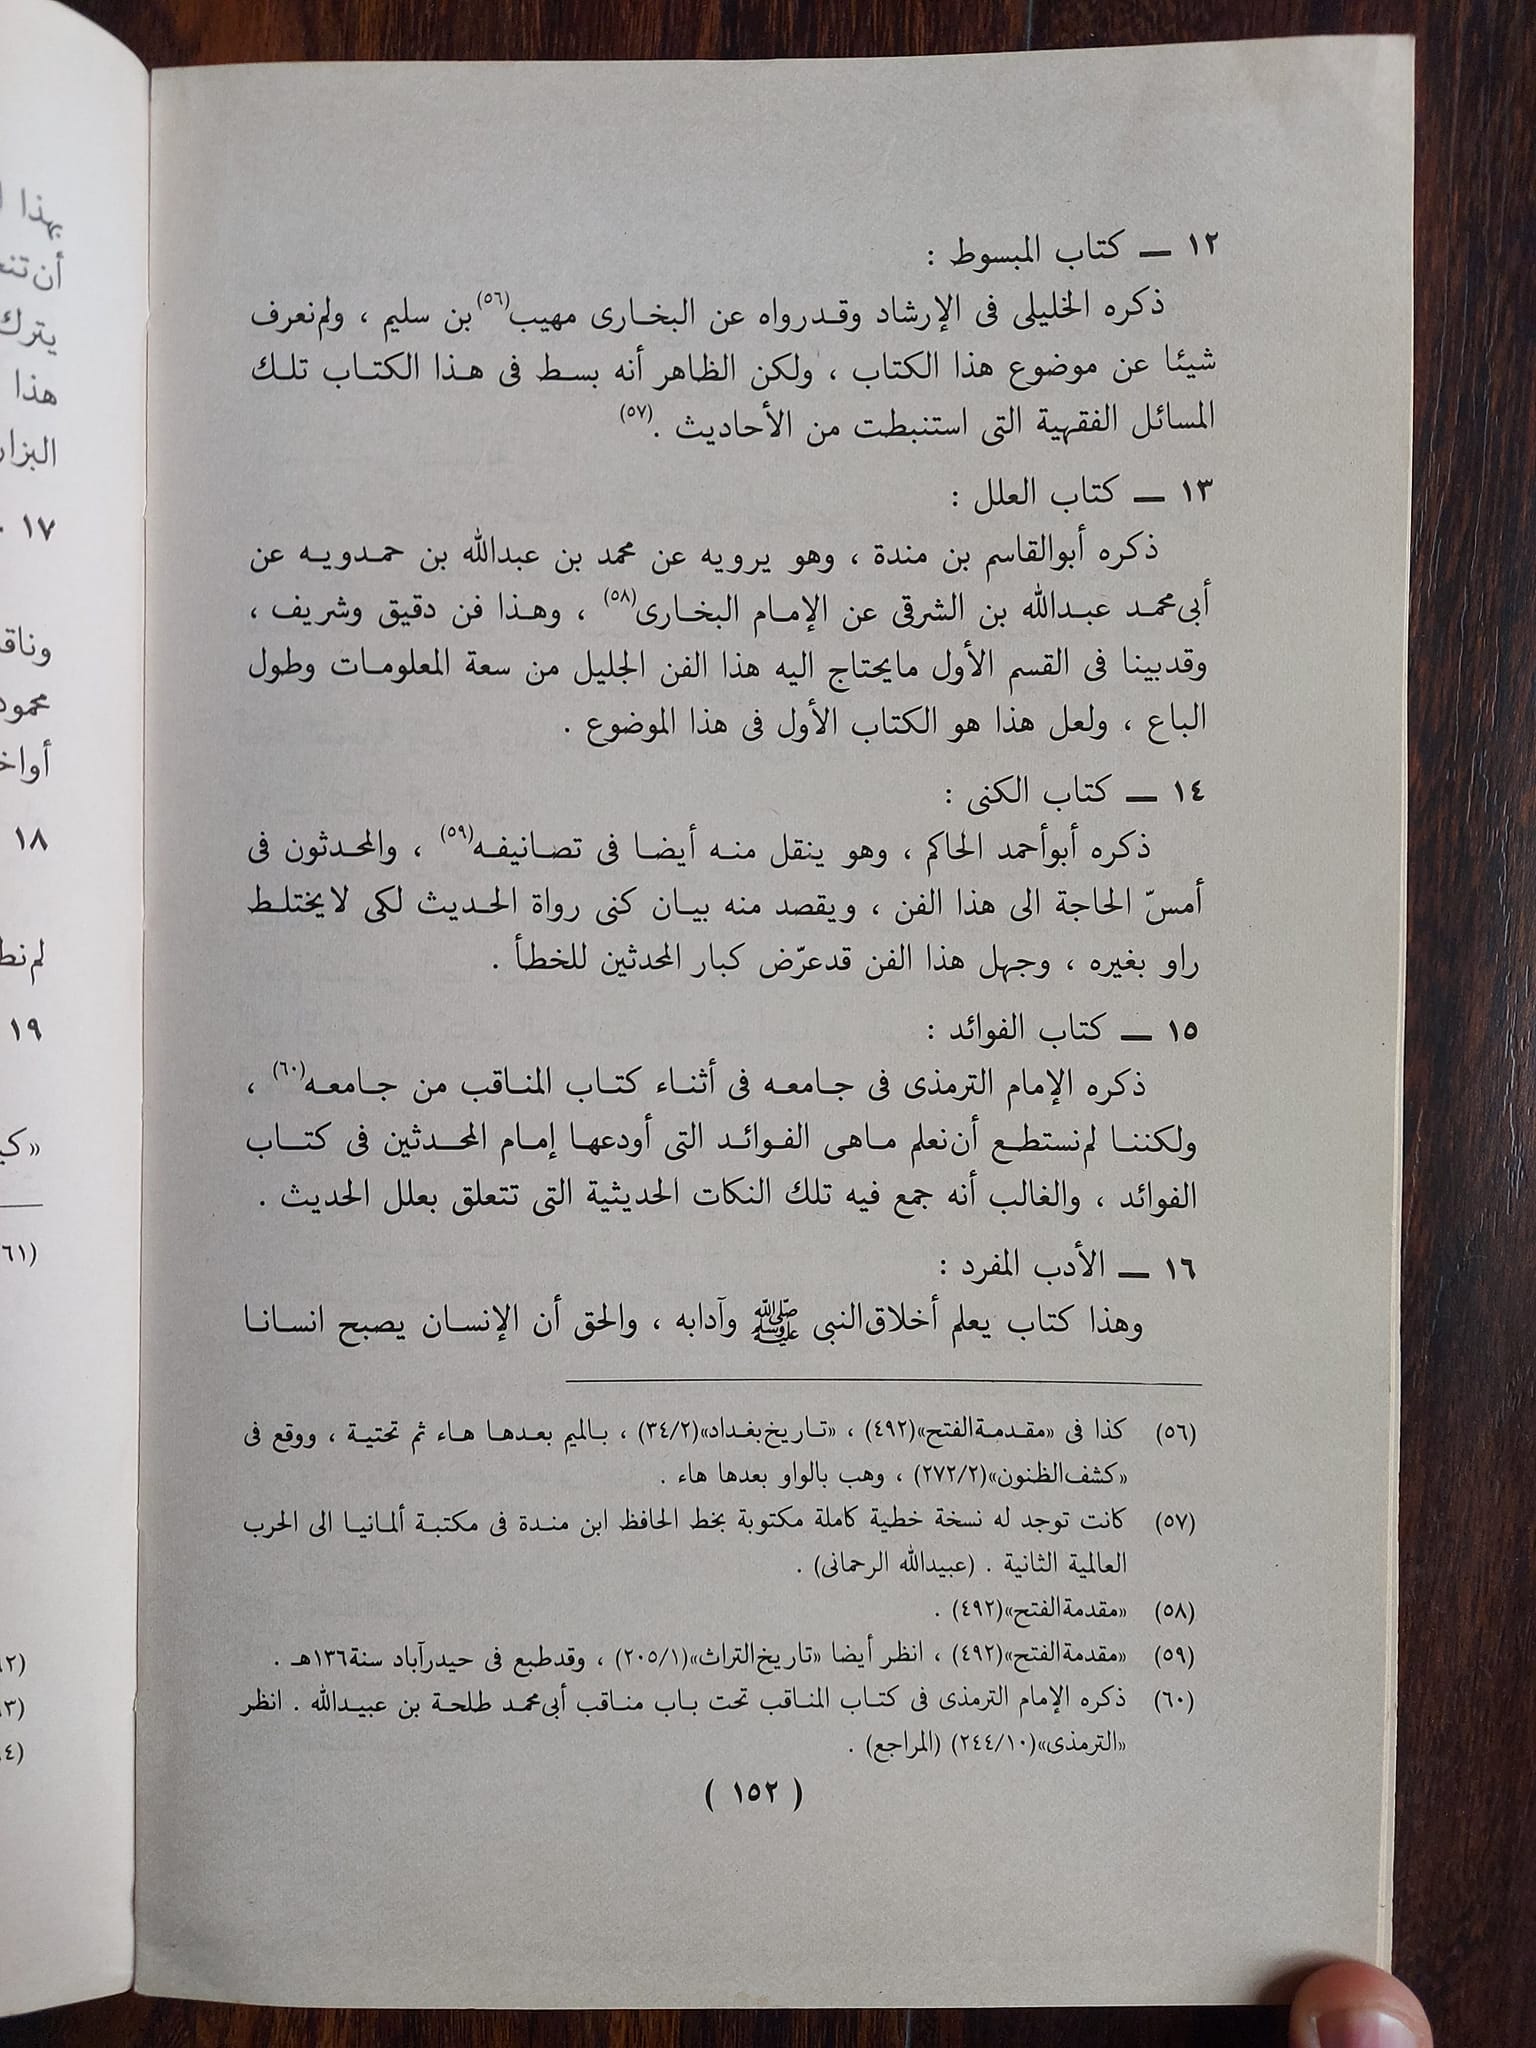 ١٢ ــ كتاب المبسوط :
ذكره الخليلى فى الإرشاد وقدرواه عن البخارى مهيب(٥٦) بن سليم ، ولم نعرف
شيئا عن موضوع هذا الكتاب ، ولكن الظاهر أنه بسط فى هذا الكتاب تلك
المسائل الفقهية التى استنبطت من الأحاديث .(٥٧)
١٣ ــ كتاب العلل :
ذكره أبوالقاسم بن مندة ، وهو يرويه عن محمد بن عبدالله بن حمدويه عن
أبى محمد عبدالله بن الشرقى عن الإمام البخارى(٥٨) ، وهذا فن دقيق وشريف ،
وقدبينا فى القسم الأول مايحتاج اليه هذا الفن الجليل من سعة المعلومات وطول
الباع ، ولعل هذا هو الكتاب الأول فى هذا الموضوع .
١٤ ــ كتاب الكنى :
ذكره أبوأحمد الحاكم ، وهو ينقل منه أيضا فى تصانيفه(٥٩) ، والمحدثون فى
أمسّ الحاجة الى هذا الفن ، ويقصد منه بيان كنى رواة الحديث لكى لايختلط
راو بغيره ، وجهل هذا الفن قدعرّض كبار المحدثين للخطأ .
١٥ ــ كتاب الفوائد :
ذكره الإمام الترمذى فى جامعه فى أثناء كتاب المناقب من جامعه(٦٠) ،
ولكننا لم نستطع أن نعلم ماهى الفوائد التى أودعها إمام المحدثين فى كتاب
الفوائد ، والغالب أنه جمع فيه تلك النكات الحديثية التى تتعلق بعلل الحديث .
١٦ ــ الأدب المفرد :
وهذا كتاب يعلم أخلاق النبى ﷺ وآدابه ، والحق أن الإنسان يصبح انسانا
(٥٦) كذا فى «مقدمة الفتح»(٤٩٢) ، «تاريخ بغداد»(٣٤/٢) ، بالميم بعدها هاء ثم تحتية ، ووقع فى
«كشف الظنون»(٢٧٢/٢) ، وهب بالواو بعدها هاء .
(٥٧) كانت توجد له نسخة خطية كاملة مكتوبة بخط الحافظ ابن مندة فى مكتبة ألمانيا الى الحرب
العالمية الثانية . (عبيدالله الرحمانى) .
(٥٨) «مقدمة الفتح»(٤٩٢) .
(٥٩) «مقدمة الفتح»(٤٩٢) ، انظر أيضا «تاريخ التراث»(٢٠٥/١) ، وقدطبع فى حيدرآباد سنة١٣٦هـ .
(٦٠) ذكره الإمام الترمذى فى كتاب المناقب تحت باب مناقب أبى محمد طلحة بن عبيدالله . انظر
«الترمذى»(٢٤٤/١٠) (المراجع) .
( ١٥٢ )
بهذا
يترك
هذا
البزار
١٧
١٨
١٩